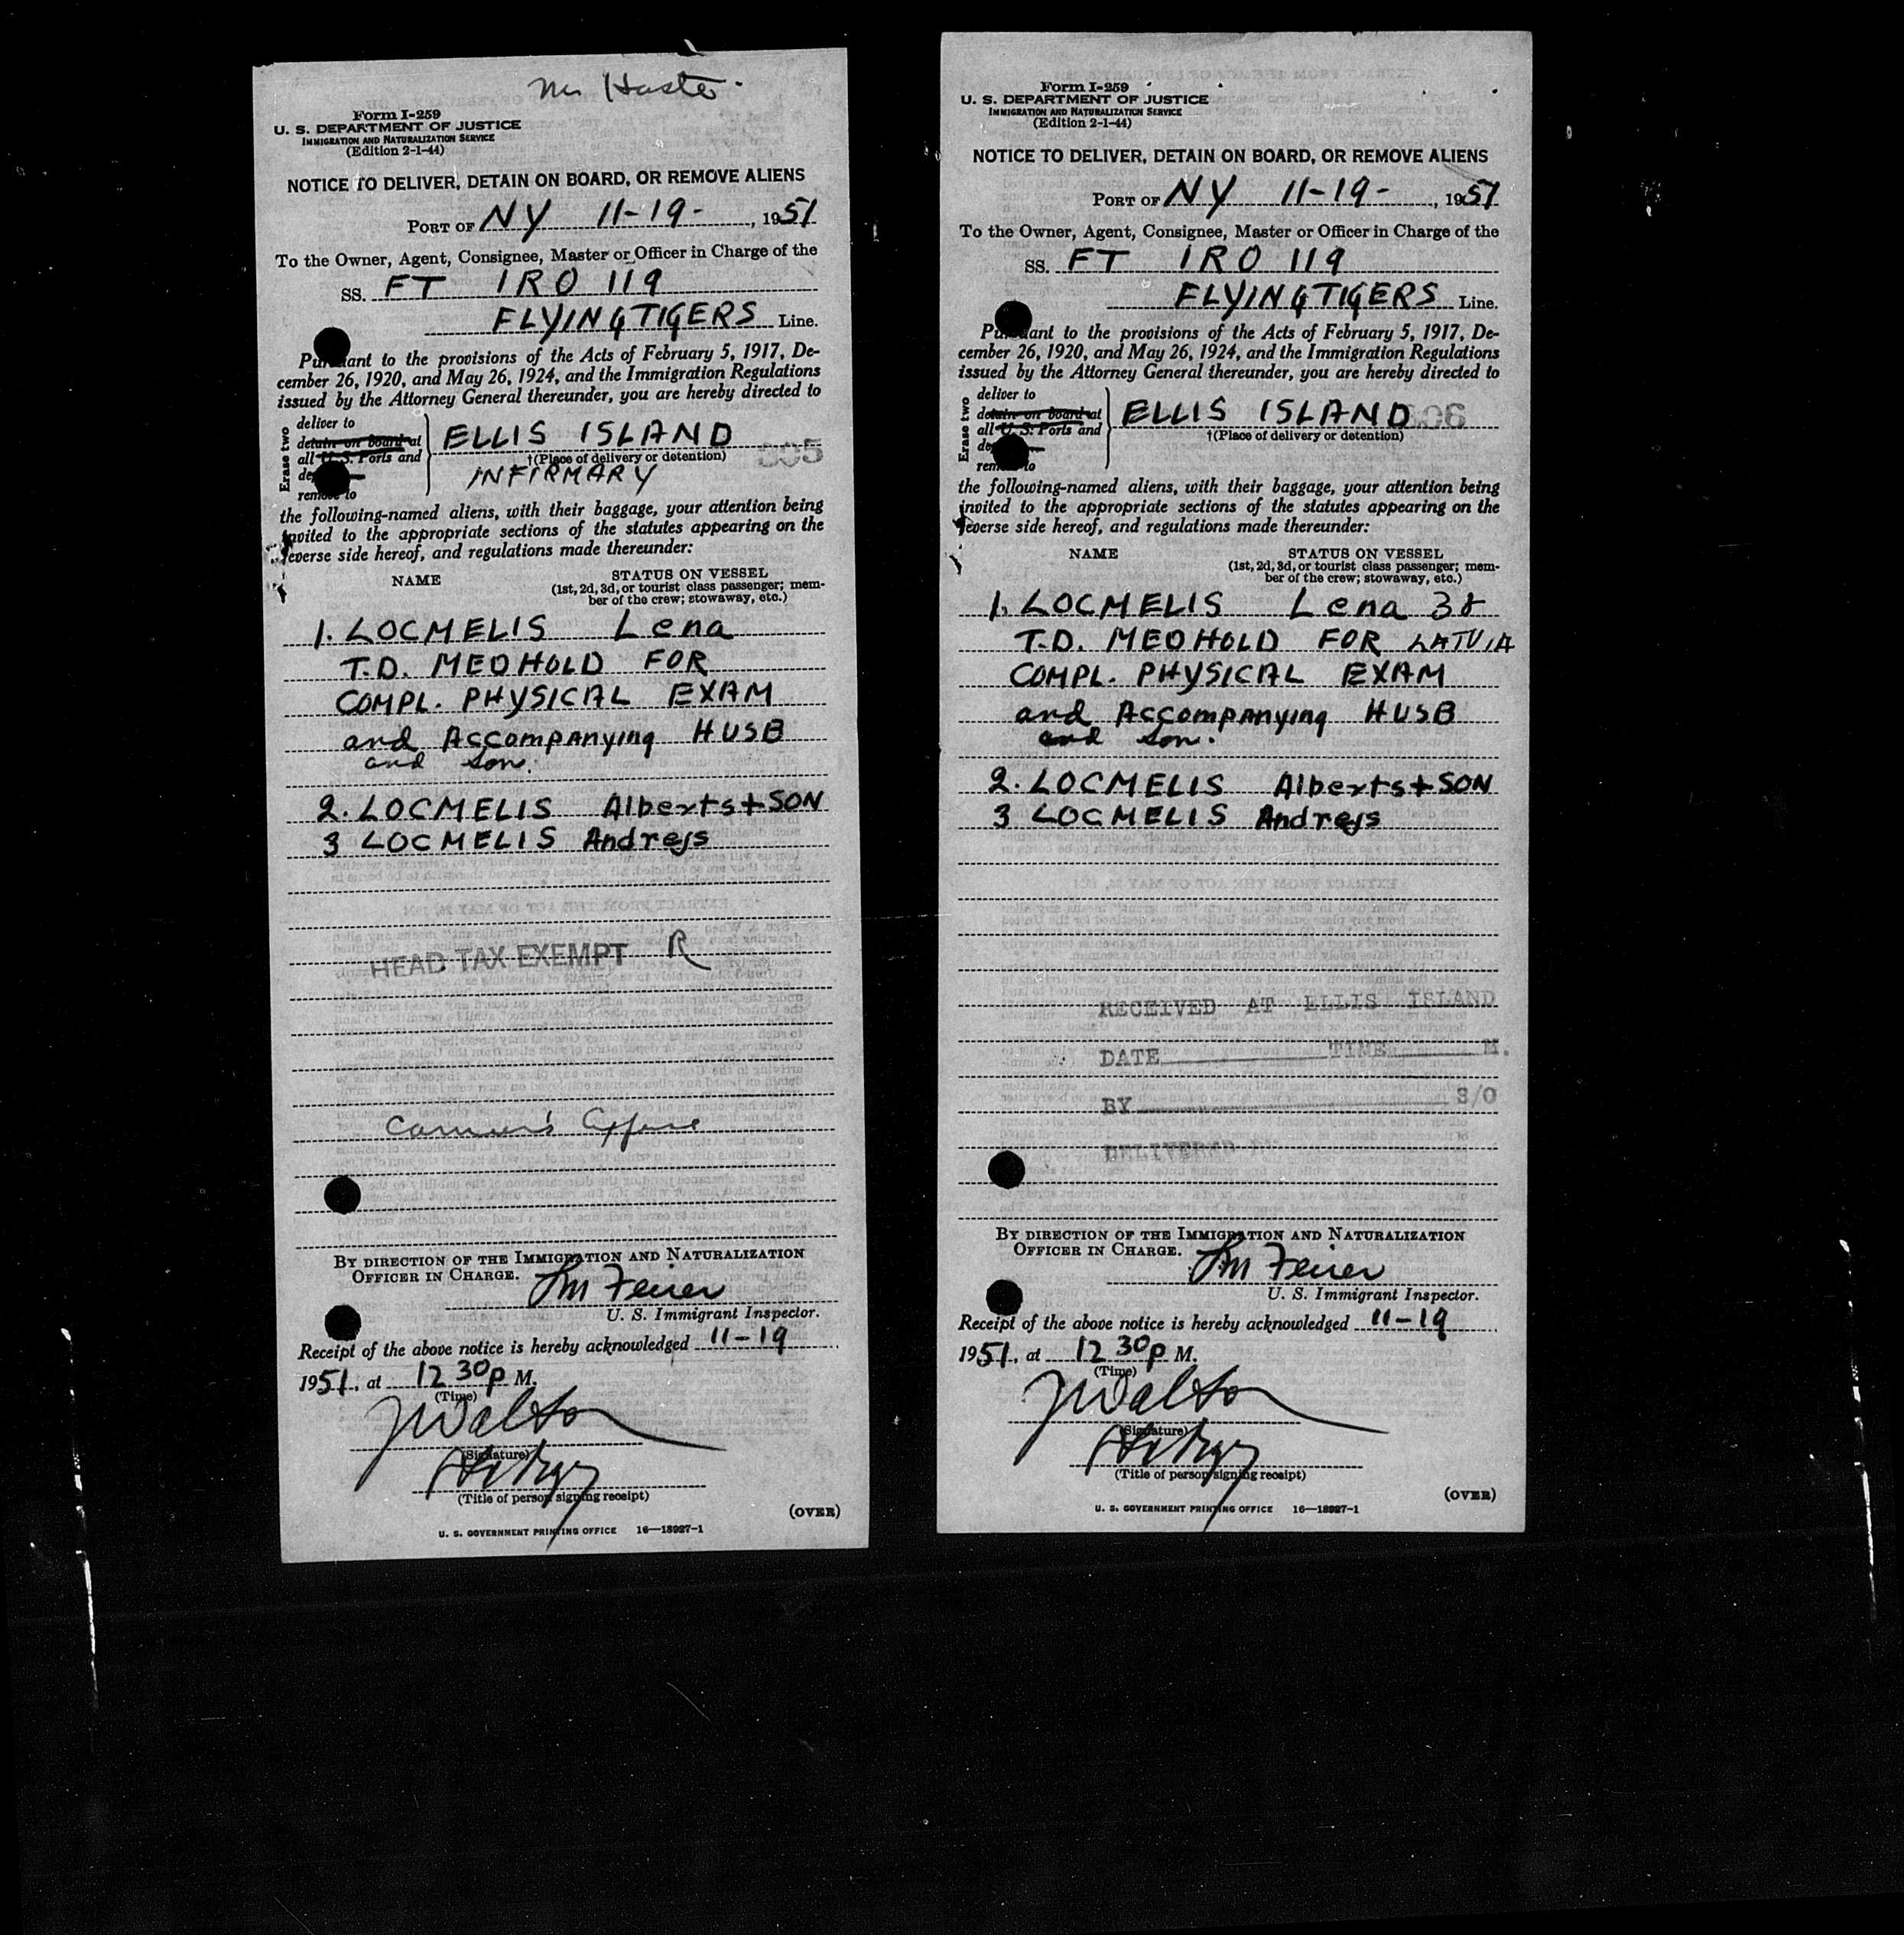 Form I-259
U. S. DEPARTMENT OF JUSTICE
IMMIGRATION AND NATURALIZATION SERVICE
(Edition 2-1-44)
NOTICE TO DELIVER, DETAIN ON BOARD, OR REMOVE ALIENS
PORT OF NY 11-19- , 1951
To the Owner, Agent, Consignee, Master or Officer in Charge of the
SS. FT IRO 119
FLYING TIGERS Line.
Pursuant to the provisions of the Acts of February 5, 1917, De-
cember 26, 1920, and May 26, 1924, and the Immigration Regulations
issued by the Attorney General thereunder, you are hereby directed to
Erase two
deliver to
detain on board at
all U. S. Ports and
remove to
ELLIS ISLAND
†(Place of delivery or detention)
INFIRMARY
305
the following-named aliens, with their baggage, your attention being
invited to the appropriate sections of the statutes appearing on the
reverse side hereof, and regulations made thereunder:
NAME
STATUS ON VESSEL
(1st, 2d, 3d, or tourist class passenger; mem-
ber of the crew; stowaway, etc.)
1. LOCMELIS Lena
T.D. MEDHOLD FOR
COMPL. PHYSICAL EXAM
and Accompanying HUSB
and son.
2. LOCMELIS Alberts + SON
3 LOCMELIS Andrejs
HEAD TAX EXEMPT R
BY DIRECTION OF THE IMMIGRATION AND NATURALIZATION
OFFICER IN CHARGE.
U. S. Immigrant Inspector.
Receipt of the above notice is hereby acknowledged 11-19
1951, at 12 30p M.
(Time)
J Walton
(Signature)
(Title of person signing receipt)
(OVER)
U. S. GOVERNMENT PRINTING OFFICE 16—18927-1
Form I-259
U. S. DEPARTMENT OF JUSTICE
IMMIGRATION AND NATURALIZATION SERVICE
(Edition 2-1-44)
NOTICE TO DELIVER, DETAIN ON BOARD, OR REMOVE ALIENS
PORT OF NY 11-19- , 1951
To the Owner, Agent, Consignee, Master or Officer in Charge of the
SS. FT IRO 119
FLYING TIGERS Line.
Pursuant to the provisions of the Acts of February 5, 1917, De-
cember 26, 1920, and May 26, 1924, and the Immigration Regulations
issued by the Attorney General thereunder, you are hereby directed to
Erase two
deliver to
detain on board at
all U. S. Ports and
remove to
ELLIS ISLAND
†(Place of delivery or detention)
the following-named aliens, with their baggage, your attention being
invited to the appropriate sections of the statutes appearing on the
reverse side hereof, and regulations made thereunder:
NAME
STATUS ON VESSEL
(1st, 2d, 3d, or tourist class passenger; mem-
ber of the crew; stowaway, etc.)
1. LOCMELIS Lena 38
T.D. MEDHOLD FOR LATVIA
COMPL. PHYSICAL EXAM
and Accompanying HUSB
and son.
2. LOCMELIS Alberts + SON
3 LOCMELIS Andrejs
RECEIVED AT ELLIS ISLAND
DATE TIME M.
BY S/O
BY DIRECTION OF THE IMMIGRATION AND NATURALIZATION
OFFICER IN CHARGE.
U. S. Immigrant Inspector.
Receipt of the above notice is hereby acknowledged 11-19
1951, at 12 30p M.
(Time)
J Walton
(Signature)
(Title of person signing receipt)
(OVER)
U. S. GOVERNMENT PRINTING OFFICE 16—18927-1